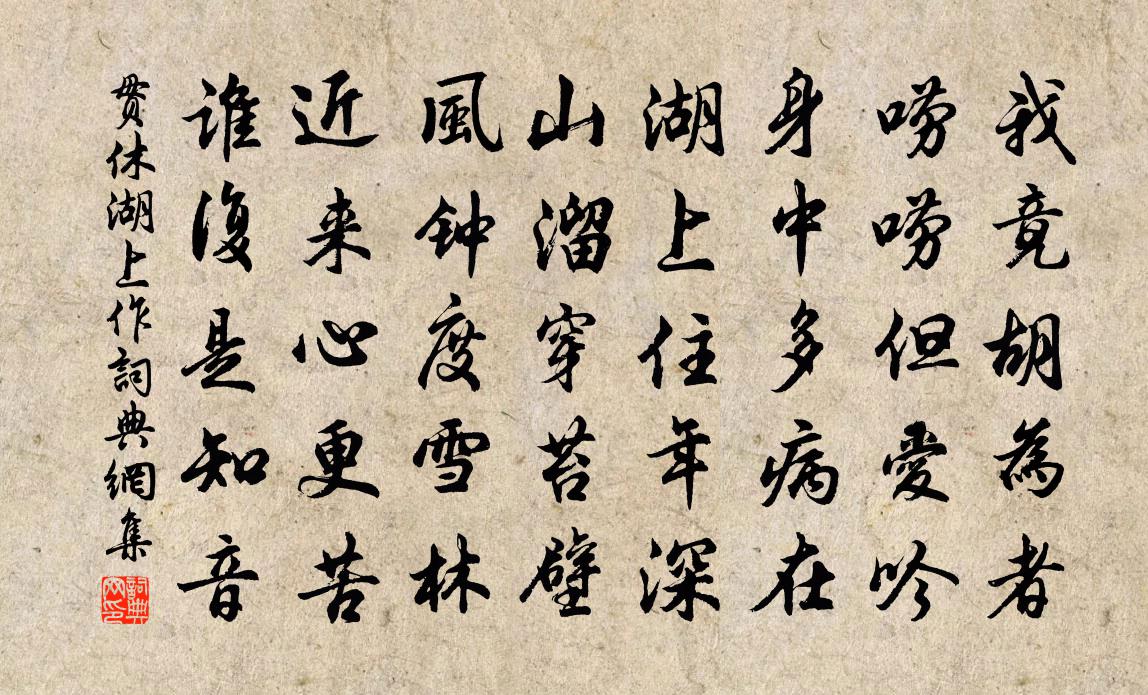 我竟胡為者
嘮嘮但愛吟
身中多病在
湖上住年深
山溜穿苔壁
風钟度雪林
近来心更苦
谁復是知音
贯休湖上作詞典網集
詞典网印